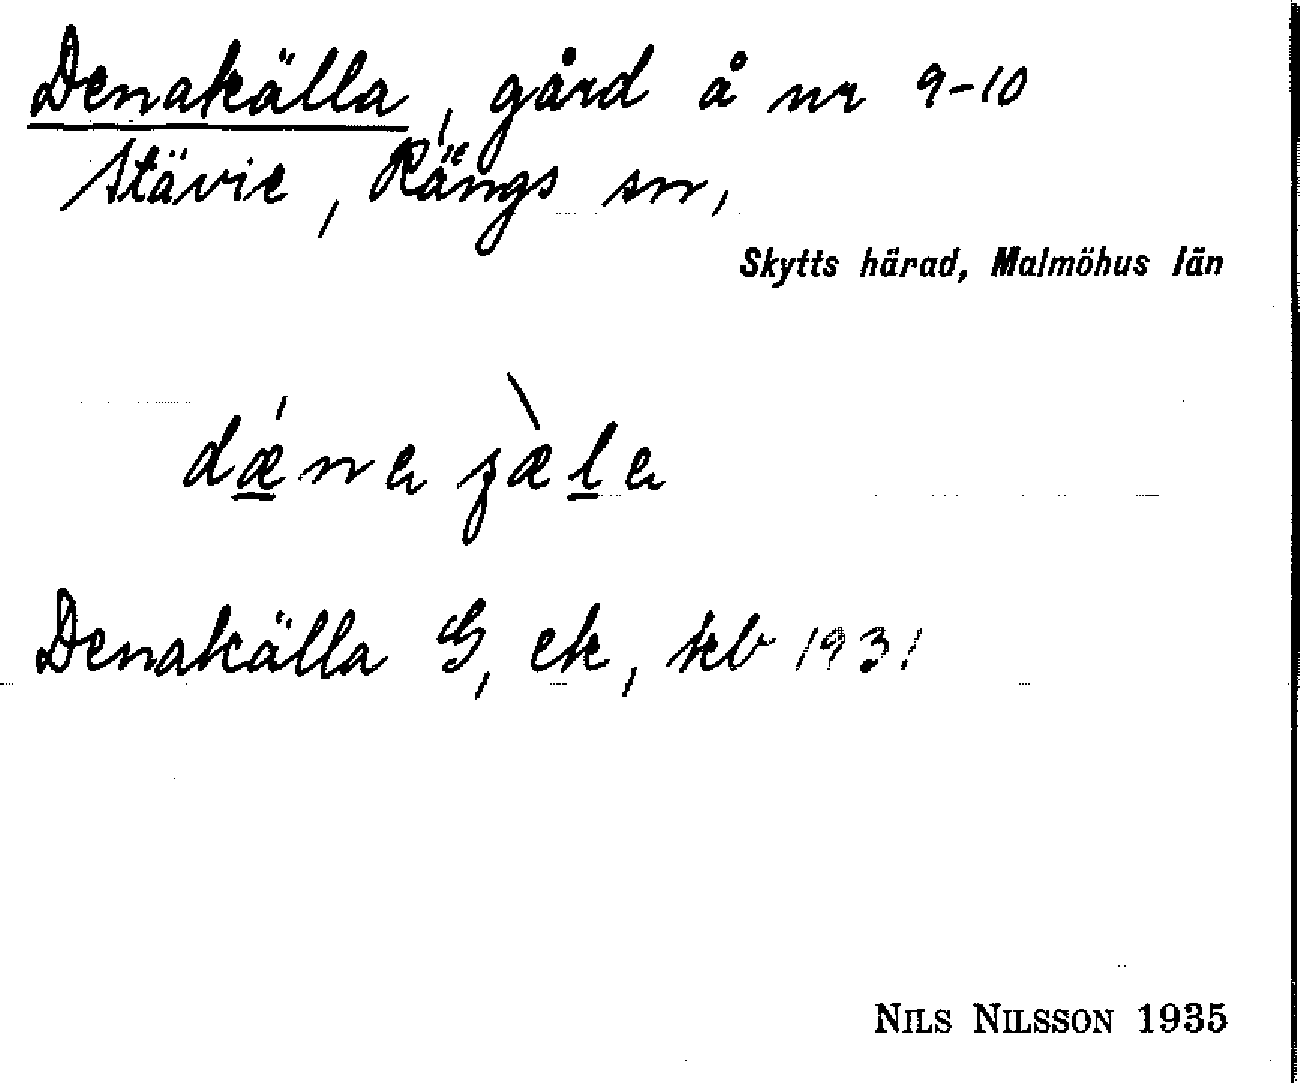 Denakälla, gård å nr 9-10
Stävie, Rängs sn,
Skytts härad, Malmöhus län
dǽna ʒæ̀la
Denakälla G, ek, kb 1931
NILS NILSSON 1935